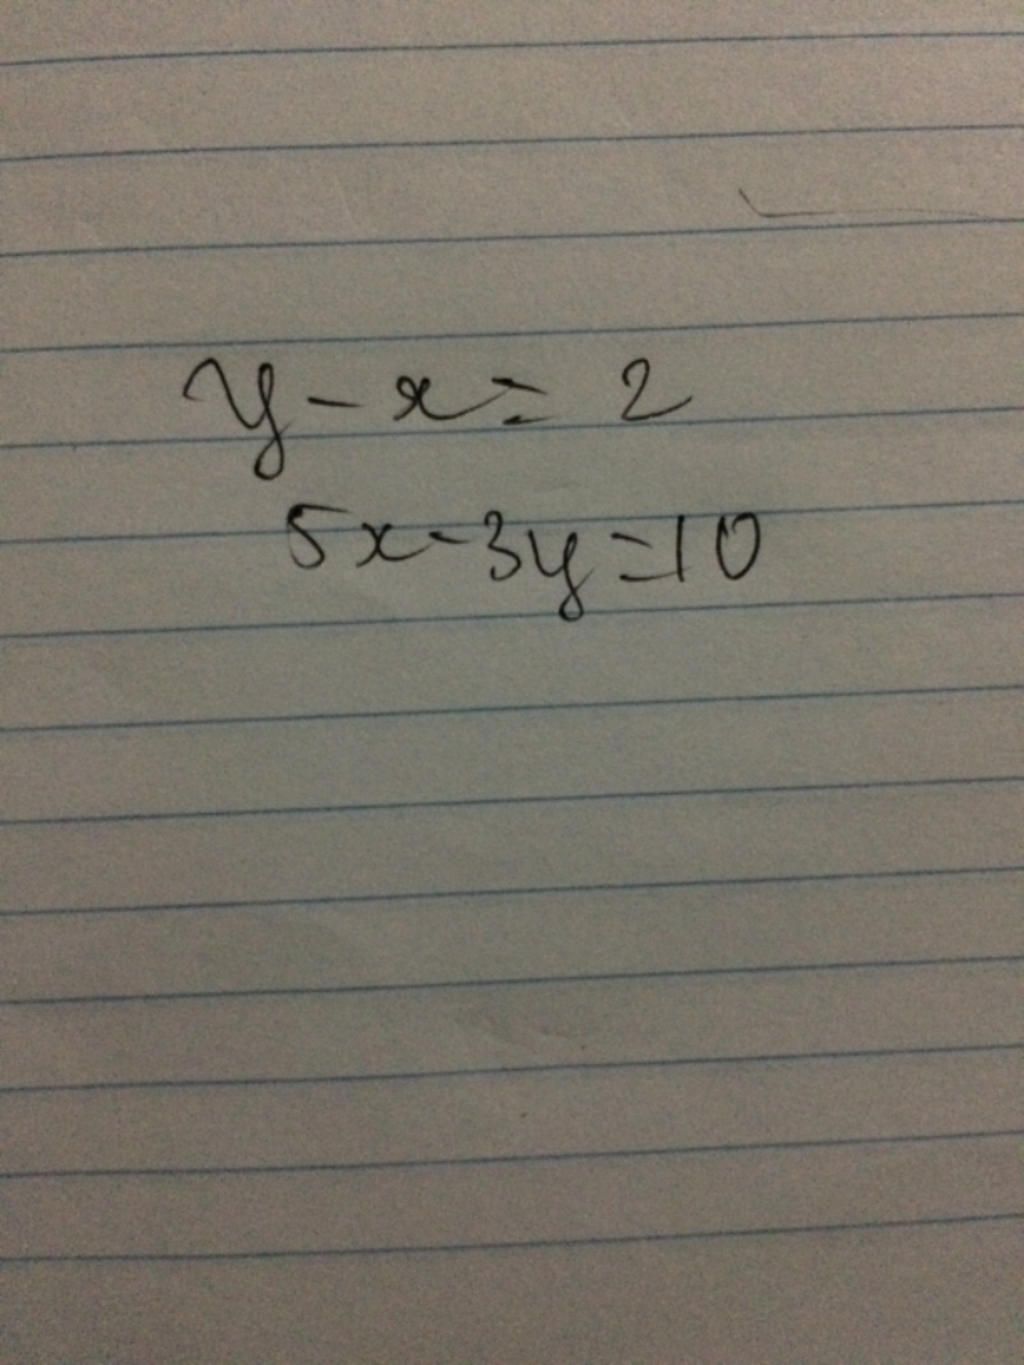 y - x = 2
5x - 3y = 10